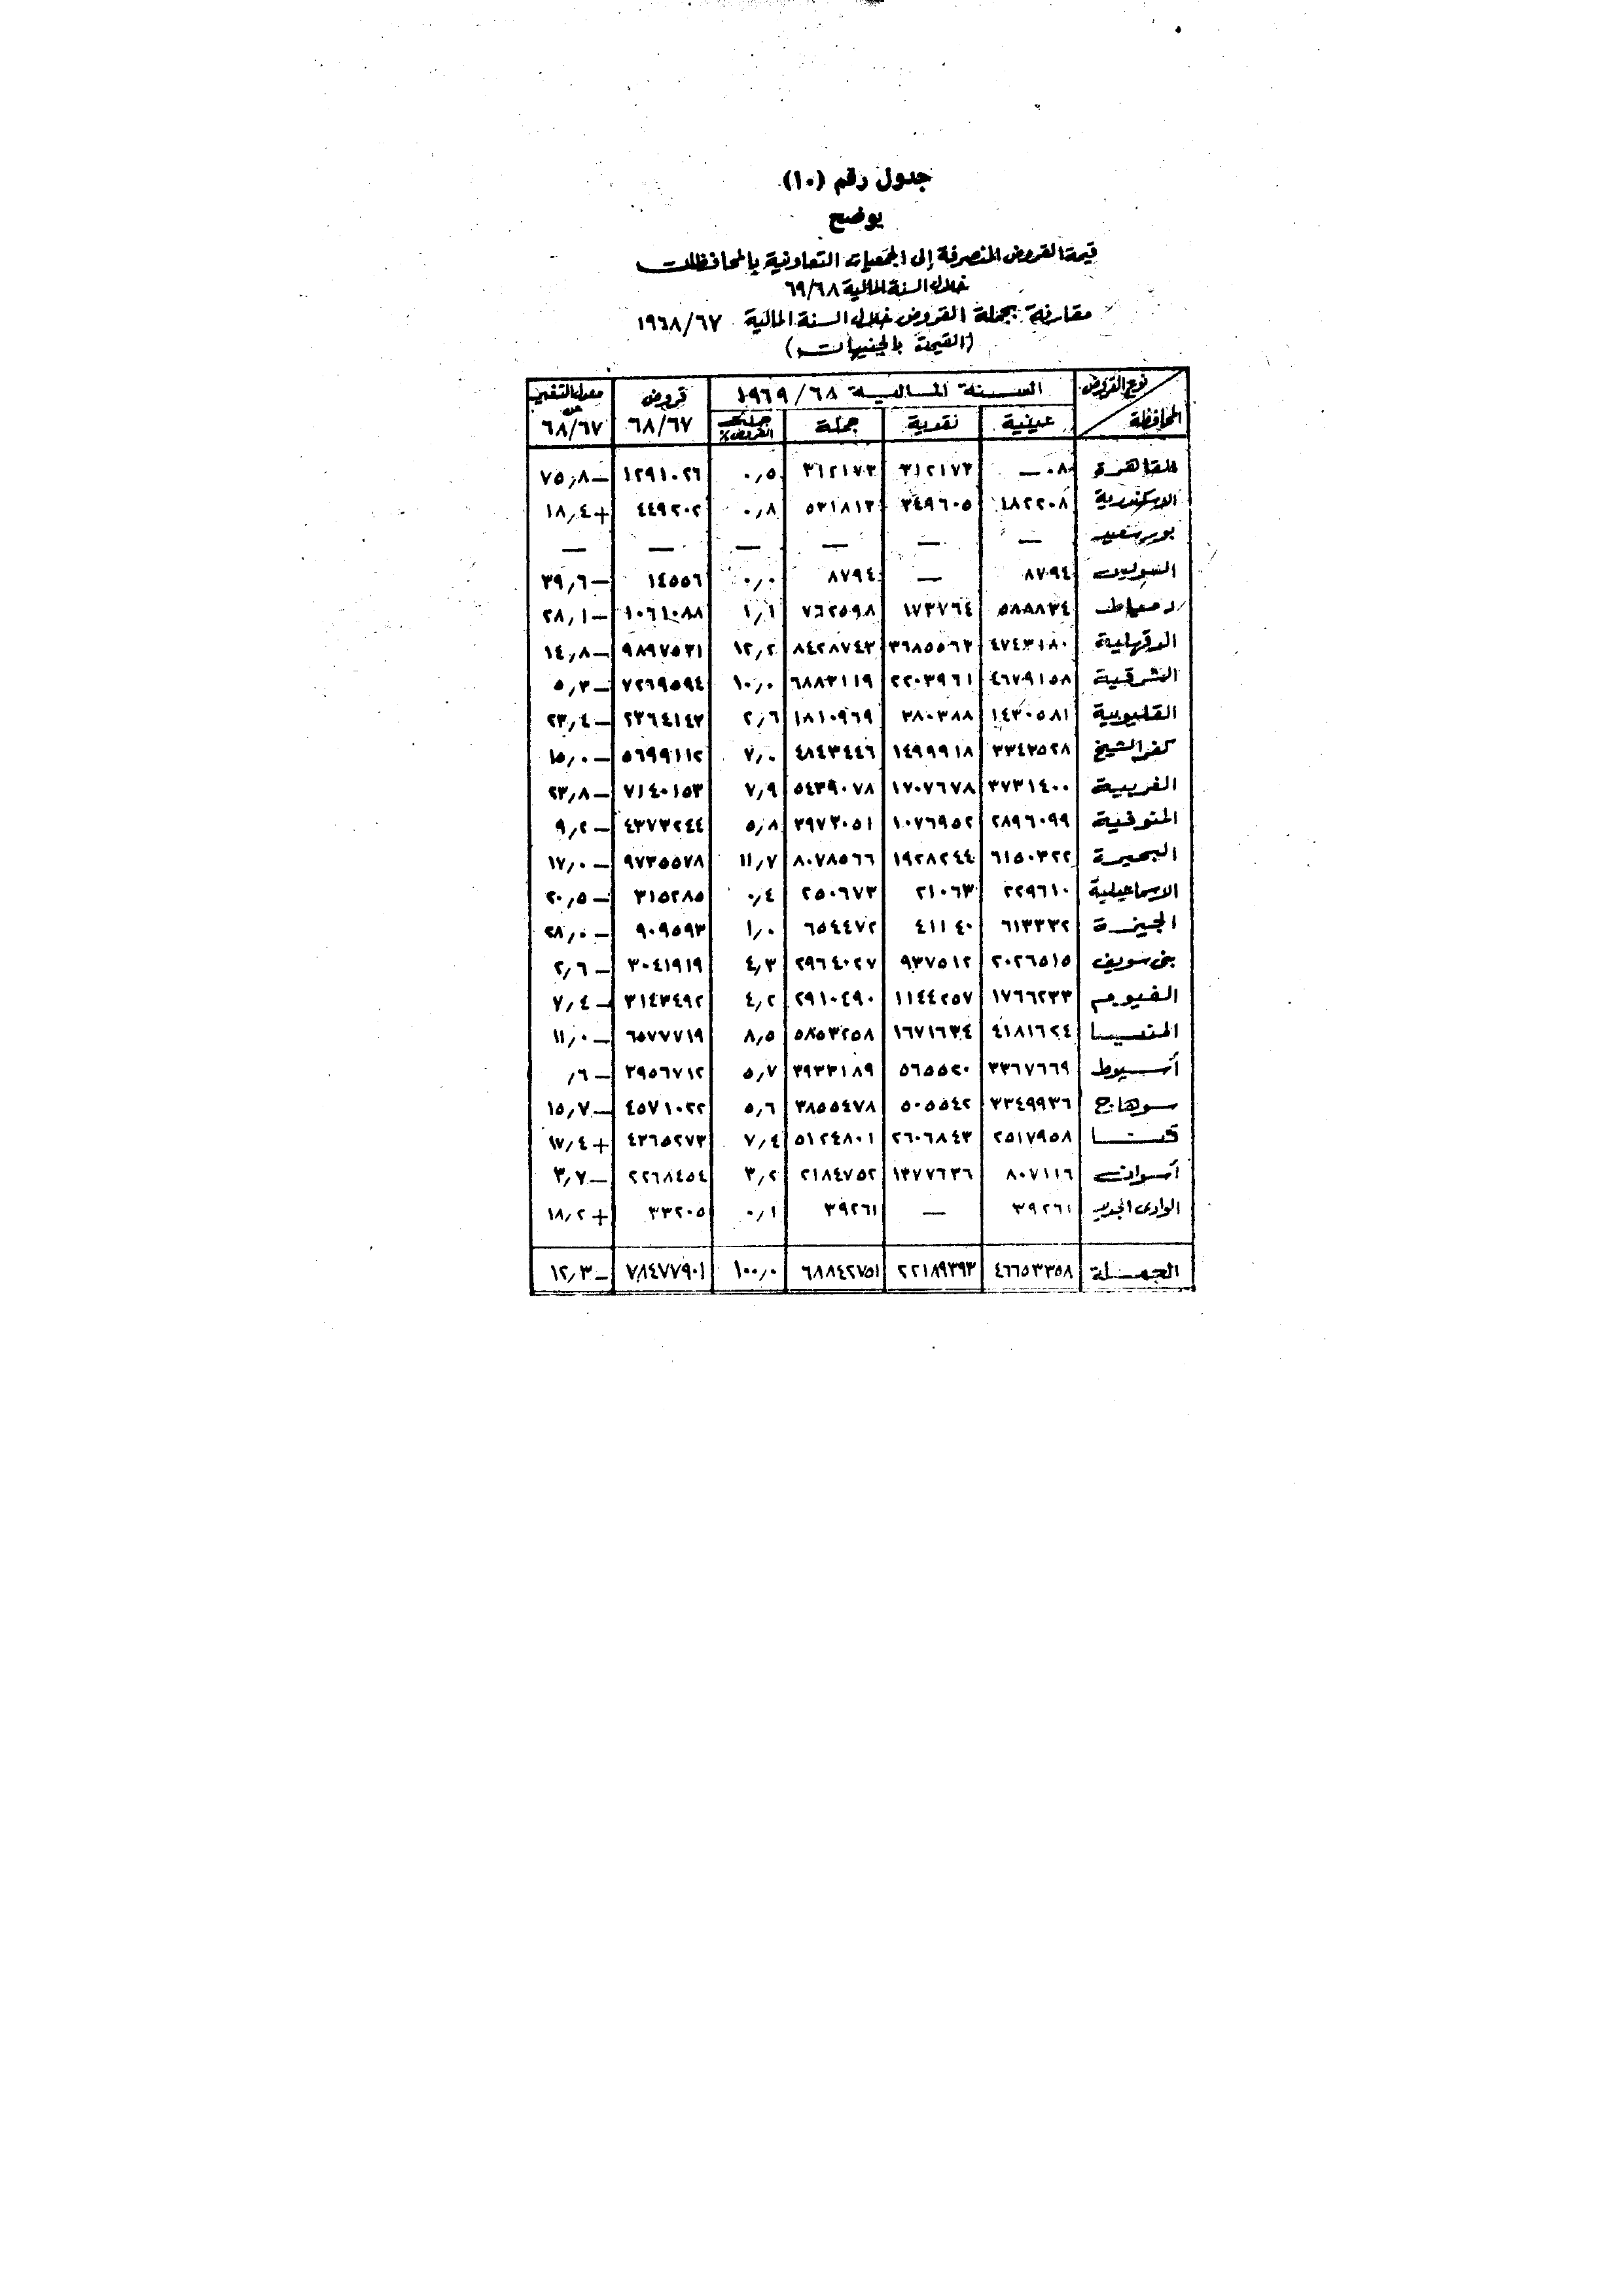 جدول رقم (١٠)
يوضح
قيمة القروض المنصرفة إلى الجمعيات التعاونية بالمحافظات
خلال السنة المالية ٦٩/٦٨
مقارنة بجملة القروض خلال السنة المالية ١٩٦٨/٦٧
(القيمة بالجنيهات)
نوع القروض السنة المالية ١٩٦٩/٦٨ قروض معدل التغير
المحافظة عينية نقدية جملة جملة القروض % ٦٨/٦٧ عن ٦٨/٦٧
القاهرة — ٣١٢١٧٣ ٣١٢١٧٣ ٠٫٥ ١٢٩١٠٢٦ —٧٥٫٨
الاسكندرية ١٨٢٢٠٨ ٣٤٩٦٠٥ ٥٣١٨١٣ ٠٫٨ ٤٤٩٢٠٢ +١٨٫٤
بور سعيد — — — — — —
السويس ٨٧٩٤ — ٨٧٩٤ ٠٫٠ ١٤٥٥٦ —٣٩٫٦
دمياط ٥٨٨٨٣٤ ١٧٣٧٦٤ ٧٦٢٥٩٨ ١٫١ ١٠٦١٠٨٨ —٢٨٫١
الدقهلية ٤٧٤٣١٨٠ ٣٦٨٥٥٦٣ ٨٤٢٨٧٤٣ ١٢٫٢ ٩٨٩٧٥٣١ —١٤٫٨
الشرقية ٤٦٧٩١٥٨ ٢٢٠٣٩٦١ ٦٨٨٣١١٩ ١٠٫٠ ٧٢٦٩٥٩٤ —٥٫٣
القليوبية ١٤٣٠٥٨١ ٣٨٠٣٨٨ ١٨١٠٩٦٩ ٢٫٦ ٢٣٦٤١٤٣ —٢٣٫٤
كفر الشيخ ٣٣٤٣٥٢٨ ١٤٩٩٩١٨ ٤٨٤٣٤٤٦ ٧٫٠ ٥٦٩٩١١٢ —١٥٫٠
الغربية ٣٧٣١٤٠٠ ١٧٠٧٦٧٨ ٥٤٣٩٠٧٨ ٧٫٩ ٧١٤٠١٥٣ —٢٣٫٨
المنوفية ٢٨٩٦٠٩٩ ١٠٧٦٩٥٢ ٣٩٧٣٠٥١ ٥٫٨ ٤٣٧٣٢٤٤ —٩٫٢
البحيرة ٦١٥٠٣٢٢ ١٩٢٨٢٤٤ ٨٠٧٨٥٦٦ ١١٫٧ ٩٧٣٥٥٧٨ —١٧٫٠
الاسماعيلية ٢٢٩٦١٠ ٢١٠٦٣ ٢٥٠٦٧٣ ٠٫٤ ٣١٥٢٨٥ —٢٠٫٥
الجيزة ٦١٣٣٣٢ ٤١١٤٠ ٦٥٤٤٧٢ ١٫٠ ٩٠٩٥٩٣ —٢٨٫٠
بنى سويف ٢٠٢٦٥١٥ ٩٣٧٥١٢ ٢٩٦٤٠٢٧ ٤٫٣ ٣٠٤١٩١٩ —٢٫٦
الفيوم ١٧٦٦٢٣٣ ١١٤٤٢٥٧ ٢٩١٠٤٩٠ ٤٫٢ ٣١٤٣٤٩٢ —٧٫٤
المنيا ٤١٨١٦٢٤ ١٦٧١٦٣٤ ٥٨٥٣٢٥٨ ٨٫٥ ٦٥٧٧٧١٩ —١١٫٠
أسيوط ٣٣٦٧٦٦٩ ٥٦٥٥٢٠ ٣٩٣٣١٨٩ ٥٫٧ ٣٩٥٦٧١٢ —٫٦
سوهاج ٣٣٤٩٩٣٦ ٥٠٥٥٤٢ ٣٨٥٥٤٧٨ ٥٫٦ ٤٥٧١٠٢٢ —١٥٫٧
قنا ٢٥١٧٩٥٨ ٢٦٠٦٨٤٣ ٥١٢٤٨٠١ ٧٫٤ ٤٣٦٥٢٧٣ +١٧٫٤
أسوان ٨٠٧١١٦ ١٣٧٧٦٣٦ ٢١٨٤٧٥٢ ٣٫٢ ٢٢٦٨٤٥٤ —٣٫٧
الوادى الجديد ٣٩٢٦١ — ٣٩٢٦١ ٠٫١ ٣٣٢٠٥ +١٨٫٢
الجملة ٤٦٦٥٣٣٥٨ ٢٢١٨٩٣٩٣ ٦٨٨٤٢٧٥١ ١٠٠٫٠ ٧٨٤٧٧٩٠١ —١٢٫٣